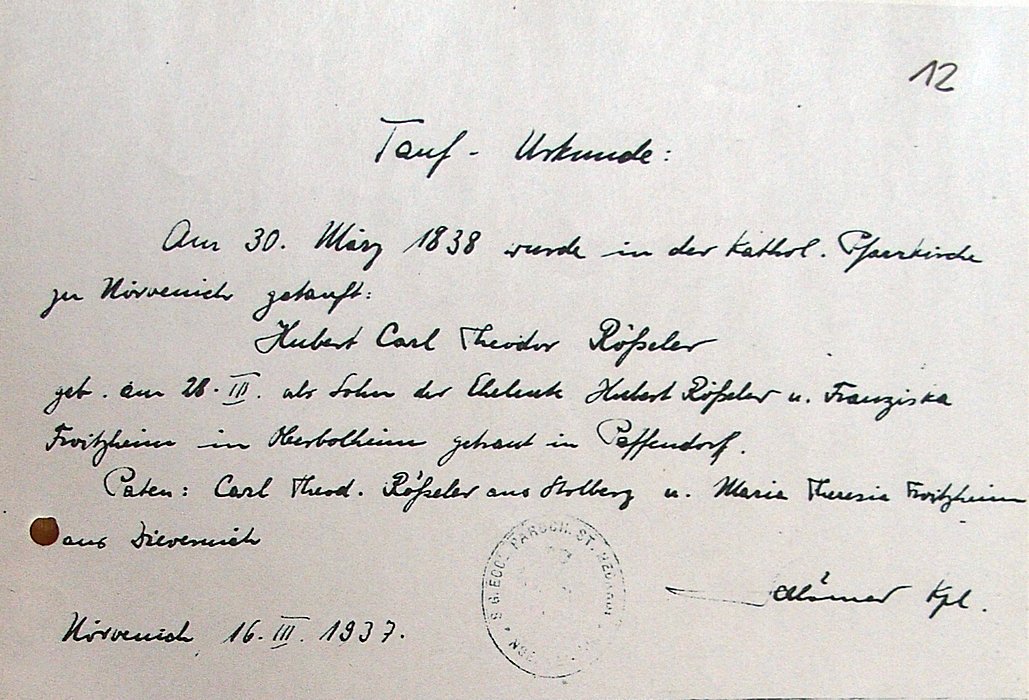 12
Tauf - Urkunde:
Am 30. März 1838 wurde in der kathol. Pfarrkirche
zu Nörvenich getauft:
Hubert Carl Theodor Rößeler
geb. am 28. III. als Sohn der Eheleute Hubert Rößeler u. Franziska
Froitzheim in Oberbolheim getraut in Paffendorf.
Paten: Carl Theod. Rößeler aus Stolberg u. Maria Theresia Froitzheim
aus Disternich
S. G. ECCL. PAROCH. ST. MEDARDI
Kpl.
Nörvenich 16. III. 1937.